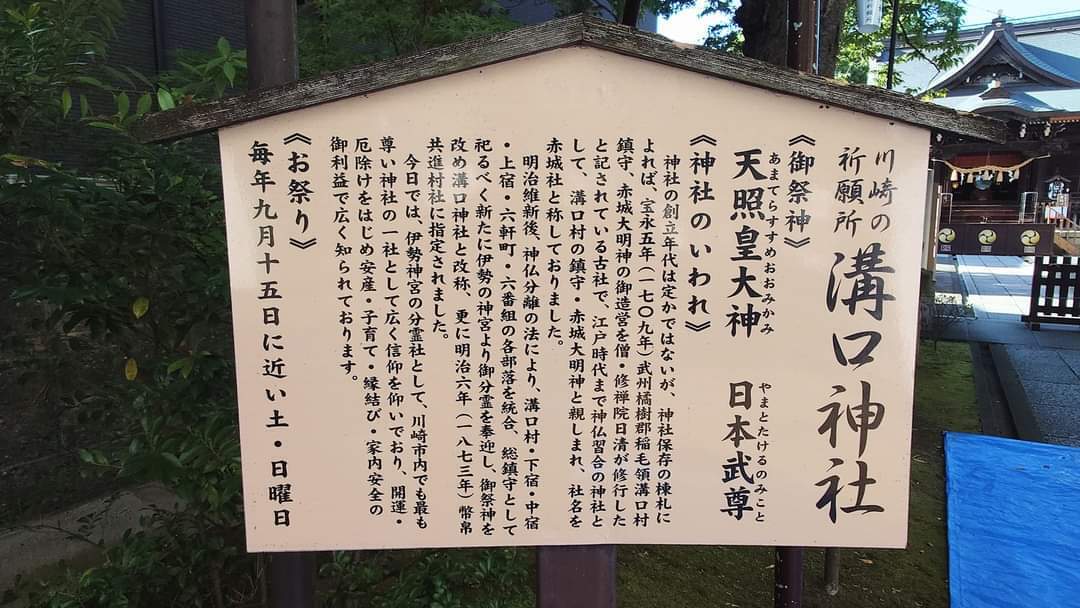 川崎の
祈願所
溝口神社
《御祭神》
あまてらすすめおおみかみ
天照皇大神
やまとたけるのみこと
日本武尊
《神社のいわれ》
神社の創立年代は定かではないが、神社保存の棟札に
よれば、宝永五年(一七〇九年)武州橘樹郡稲毛領溝口村
鎮守、赤城大明神の御造営を僧・修禅院日清が修行した
と記されている古社で、江戸時代まで神仏習合の神社と
して、溝口村の鎮守・赤城大明神と親しまれ、社名を
赤城社と称しておりました。
明治維新後、神仏分離の法により、溝口村・下宿・中宿
・上宿・六軒町・六番組の各部落を統合、総鎮守として
祀るべく新たに伊勢の神宮より御分霊を奉迎し、御祭神を
改め溝口神社と改称、更に明治六年(一八七三年)幣帛
共進村社に指定されました。
今日では、伊勢神宮の分霊社として、川崎市内でも最も
尊い神社の一社として広く信仰を仰いでおり、開運・
厄除けをはじめ安産・子育て・縁結び・家内安全の
御利益で広く知られております。
《お祭り》
毎年九月十五日に近い土・日曜日